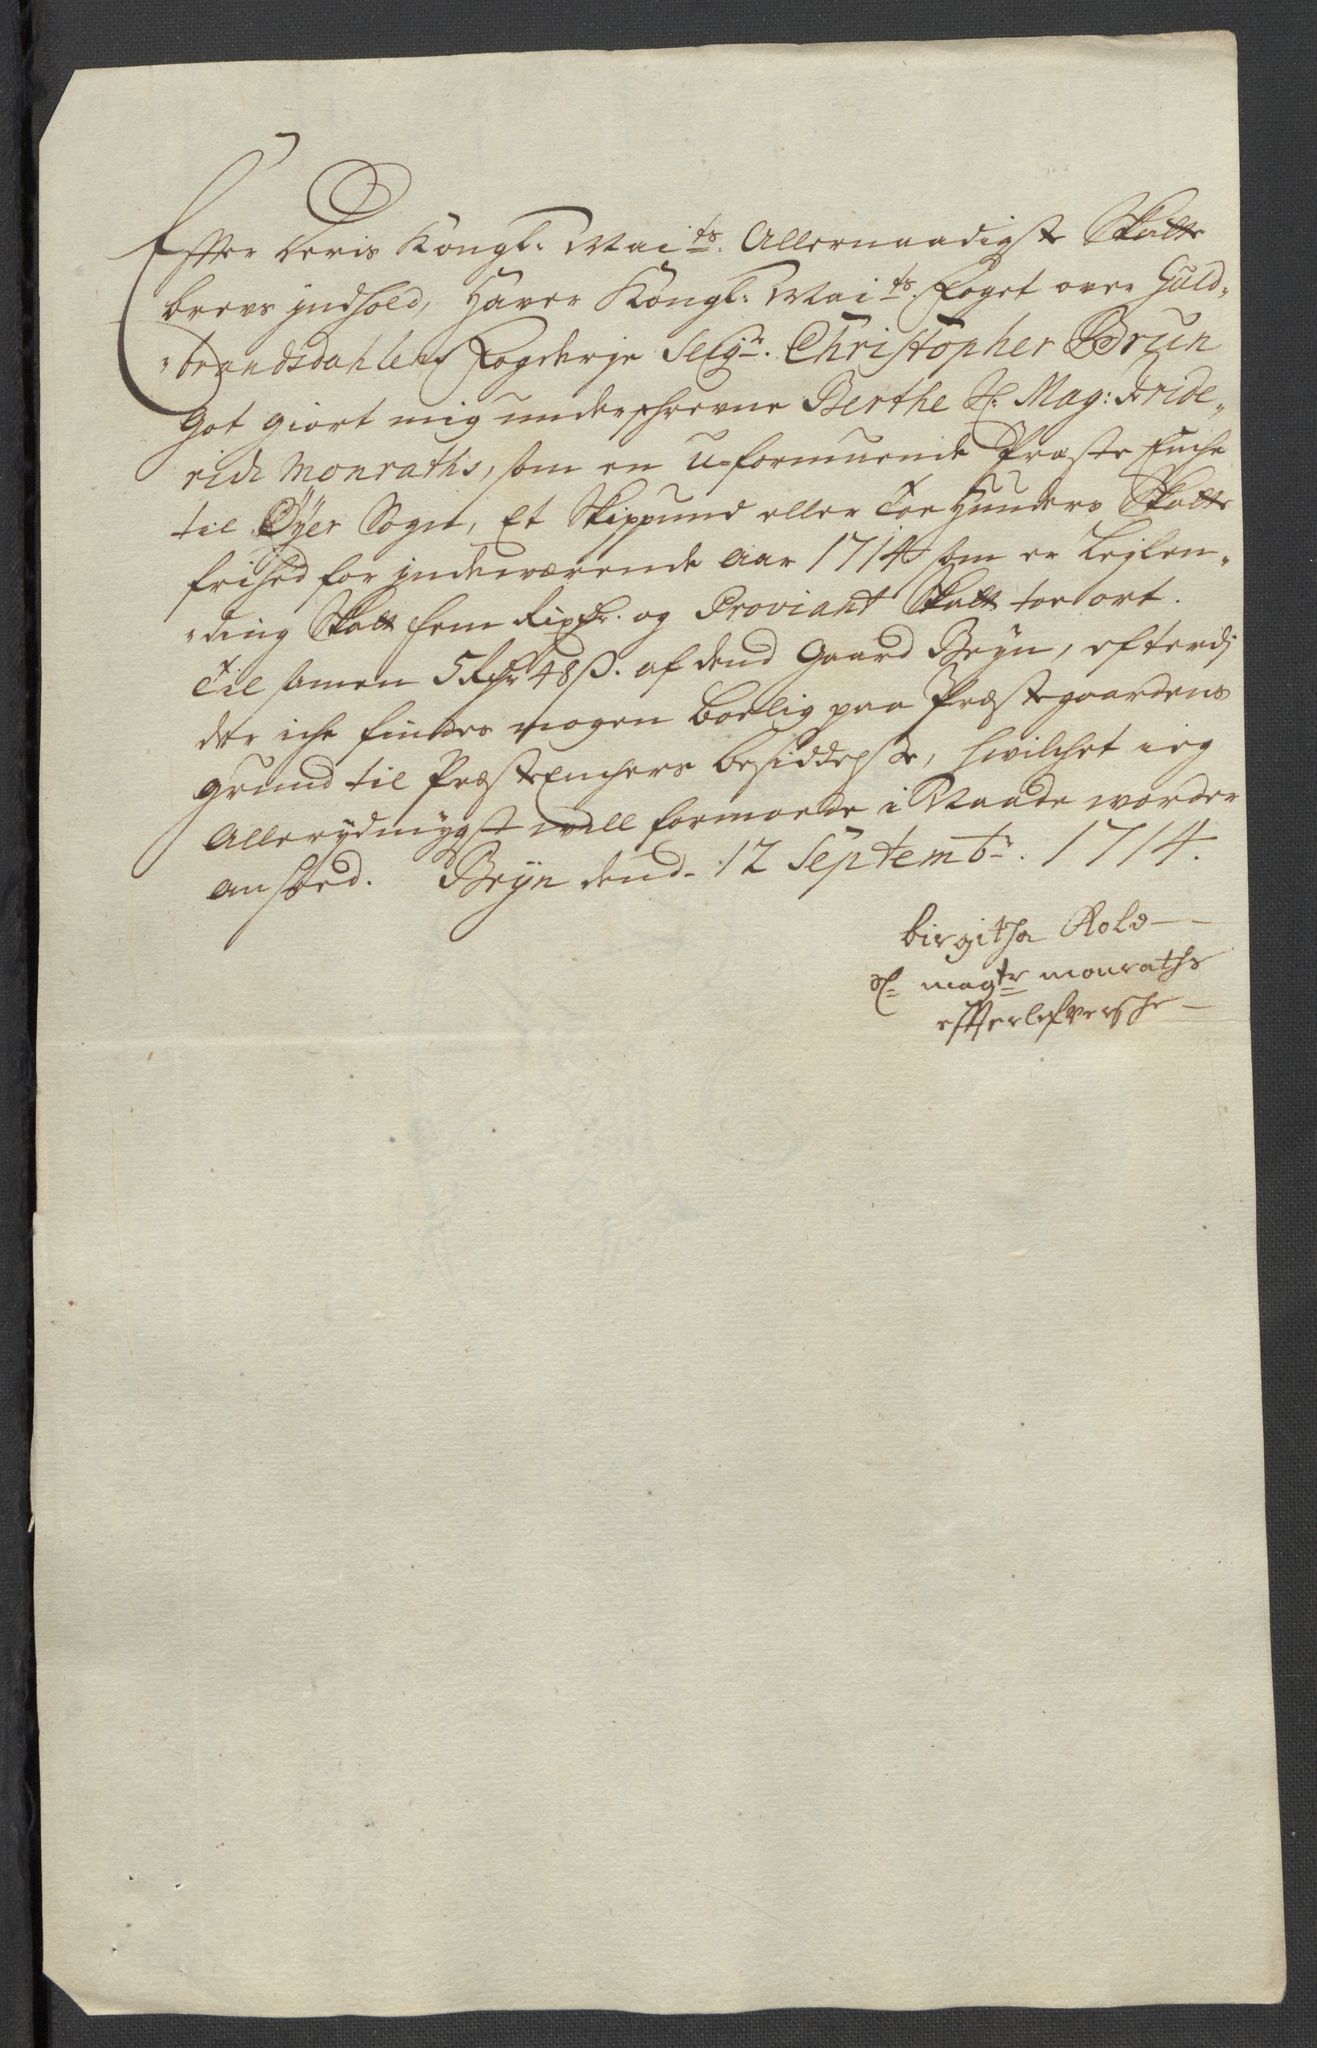 Efter deris Kongl: Mai:ts Allernaadigste Skatte
brevs indhold, Haver Kongl: Mai:ts Foget over Guld-
brandsdahlens Fogderje Seigr. Christopher Brun
Got giort mig underschrevne Berthe Sl: Mag: Fride-
rich Monraths, som en uformuende Præste Enche
til Öÿer Sogn, Et Skippund eller Toe Hunders Skatte
frihed for indeværende Aar 1714 som er Leylen-
ding Skatt fem Rixdr. og Proviant Skatt toe ort.
Til samen 5 Rdr 48 ß. af dend Gaard Bryn, efterdj
der iche findes nogen boelig paa Præstegaardens
grund til PræstEnchers besiddelse, hvilchet ieg
Allerydmygst will formoede i Naade worder
anseed. Bryn dend 12 Septembr. 1714.
birgitha Rold
Sl: magtr monraths
effterlefversche